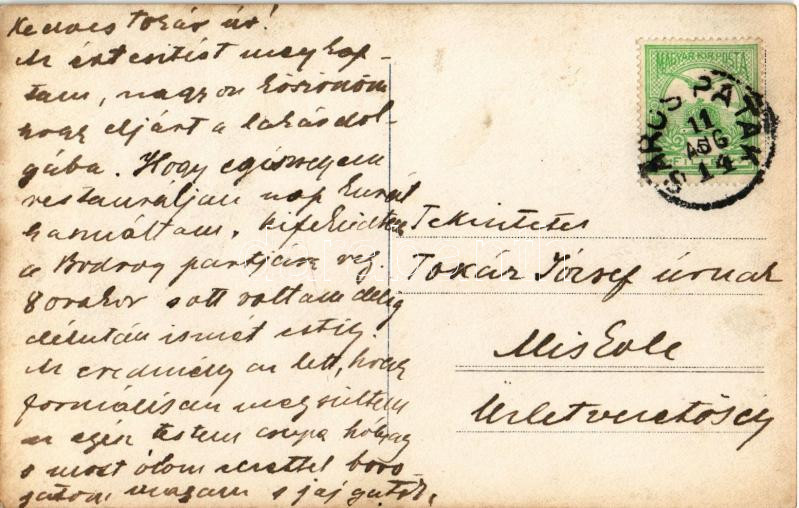 Kedves Tokár úr!
Az értesitést megkap-
tam, nagyon köszönöm
hogy eljárt a lakás dol-
gába. Hogy egészségem
restauráljam nap kurát
használtam, kifeküdtem
a Bodrog partjára reg.
8 orakor s ott voltam delig
délután ismét estig.
Az eredmény az lett, hogy
formálisan megsültem
az egész testem csupa hólyag
s most ólom vizettel boro-
gatom magam s jajgatok.
MAGYAR KIR. POSTA
SÁROSPATAK
11
AUG
14
Tekintetes
Tokár József úrnak
Miskolc
Üzletvezetőség